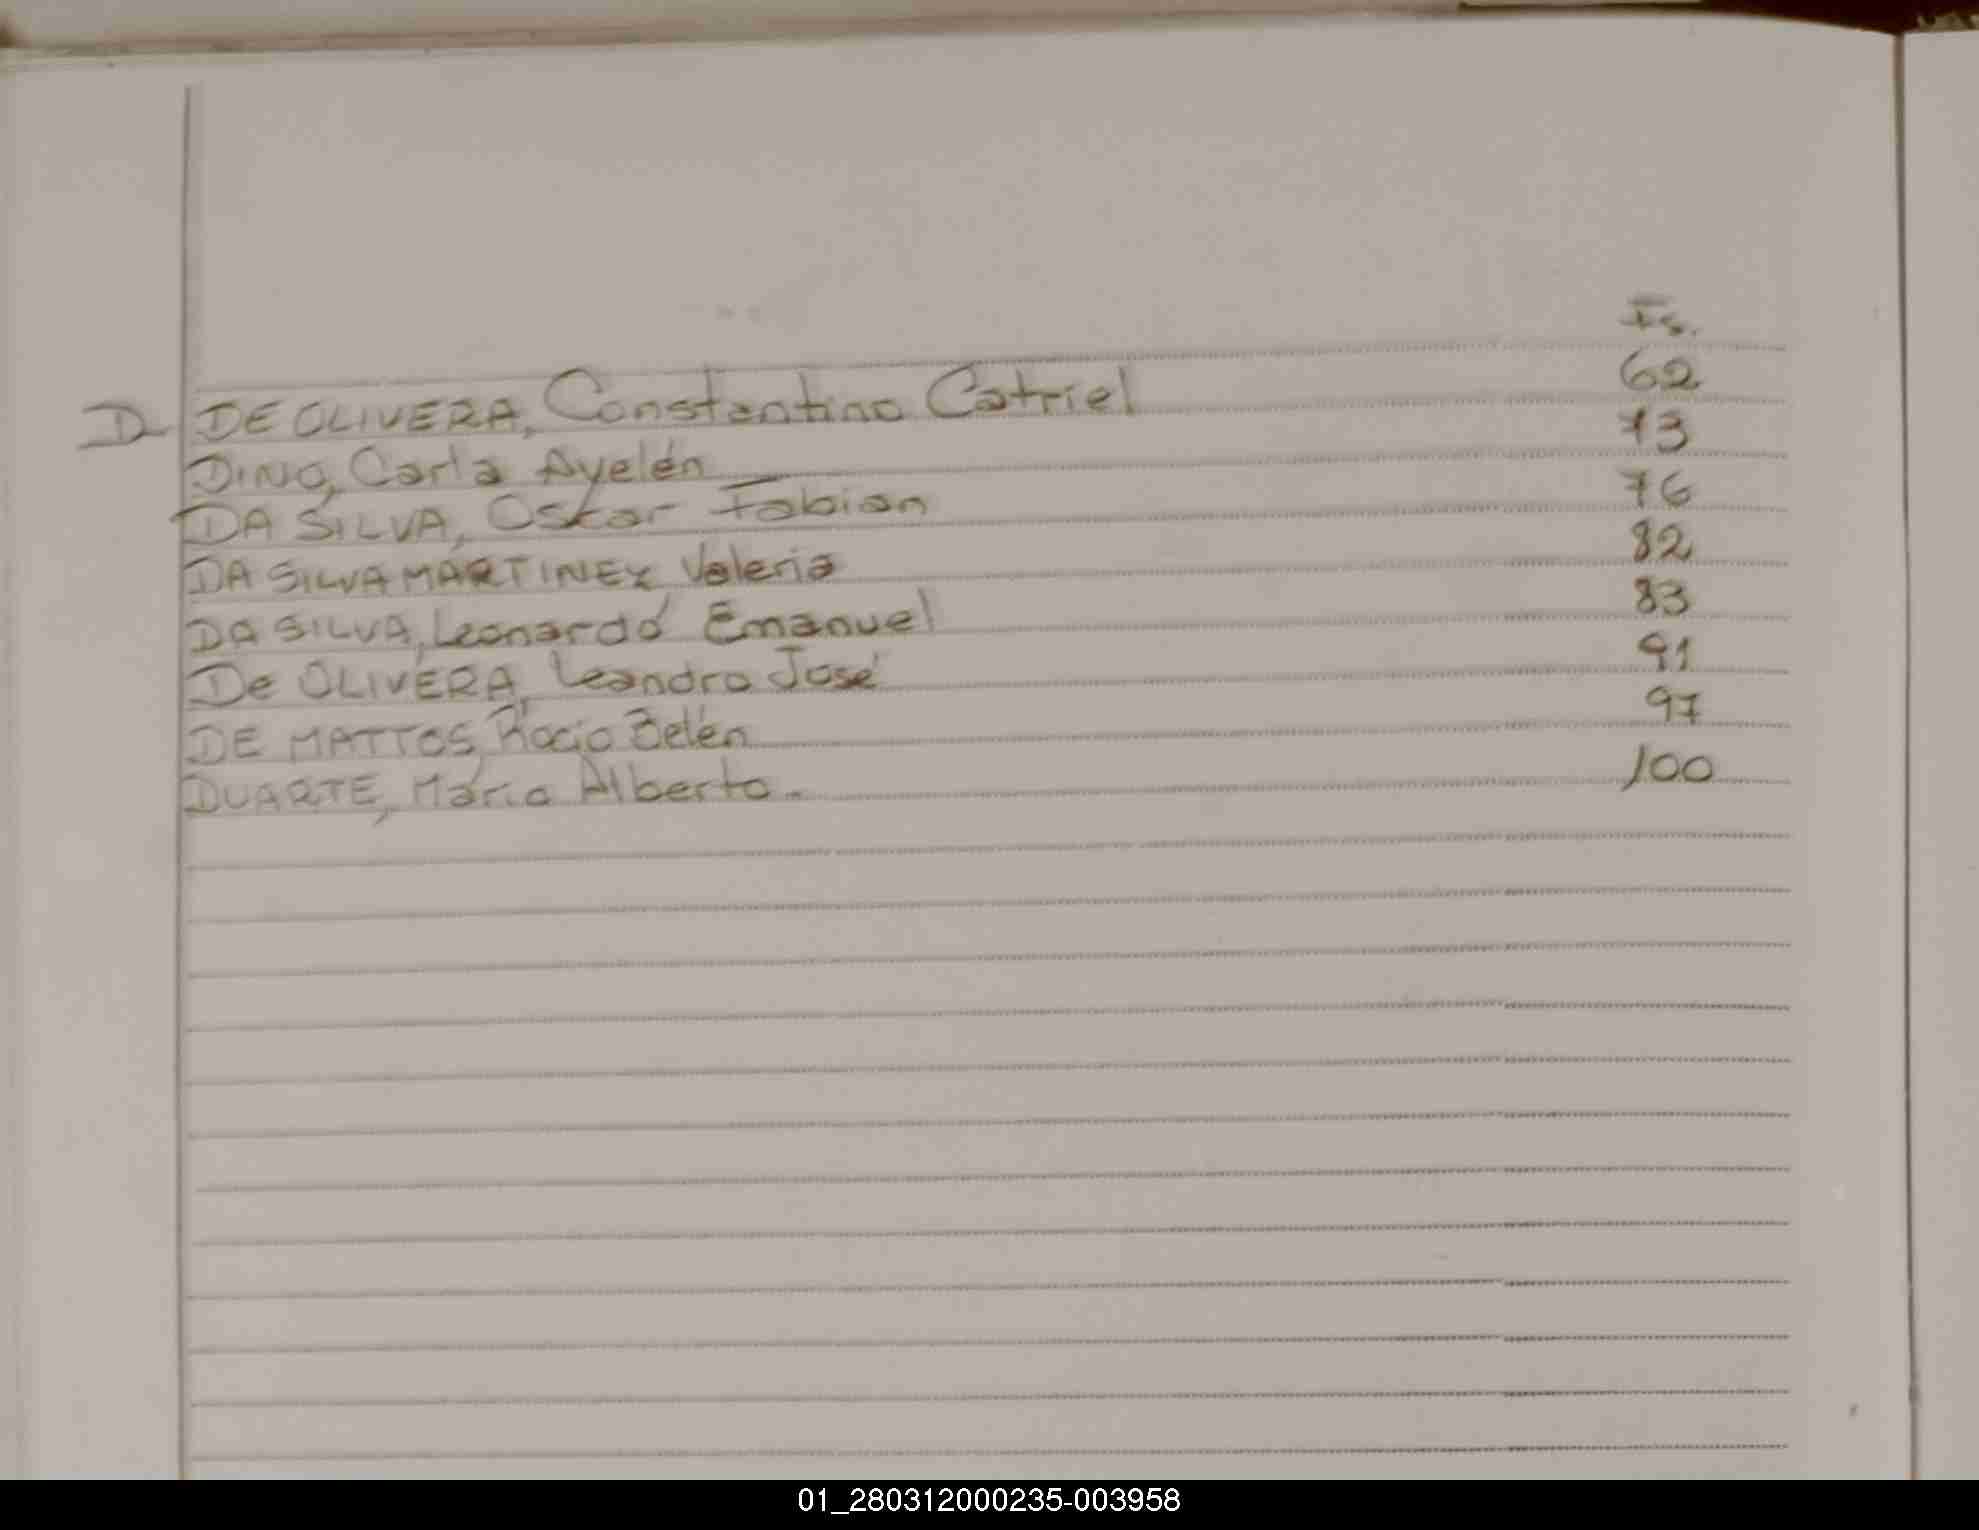 Fs.
D DE OLIVERA, Constantino Catriel 62
DINO, Carla Ayelén 73
DA SILVA, Oscar Fabian 76
DA SILVA MARTINEZ Valeria 82
DA SILVA, Leonardo Emanuel 83
De OLIVERA, Leandro José 91
DE MATTOS, Rocio Belén 97
DUARTE, Mario Alberto. 100
01_280312000235-003958